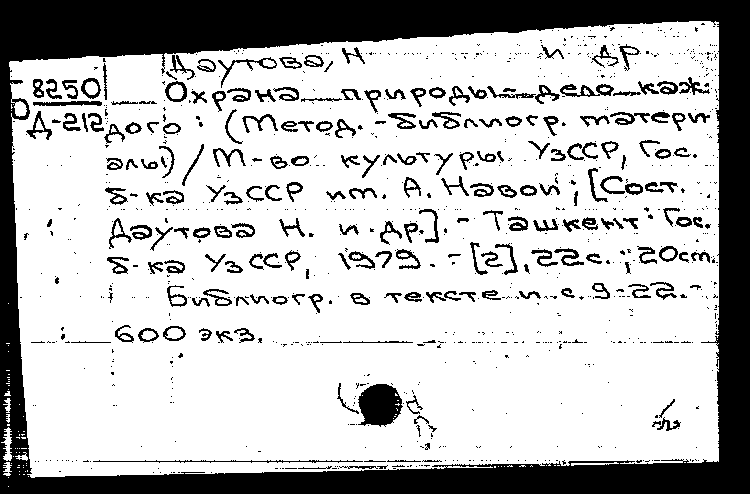 Даутова, Н и др.
8250 Охрана природы - дело каж-
Д-212 дого : (Метод. -библиогр. матери
алы) / М-во культуры УзССР, Гос.
б-ка УзССР им. А. Навои ; [Сост.
Даутова Н. и др.]. - Ташкент : Гос.
б-ка УзССР, 1979. - [2], 22с. ; 20см.
Библиогр. в тексте и с. 9-22. -
600 экз.